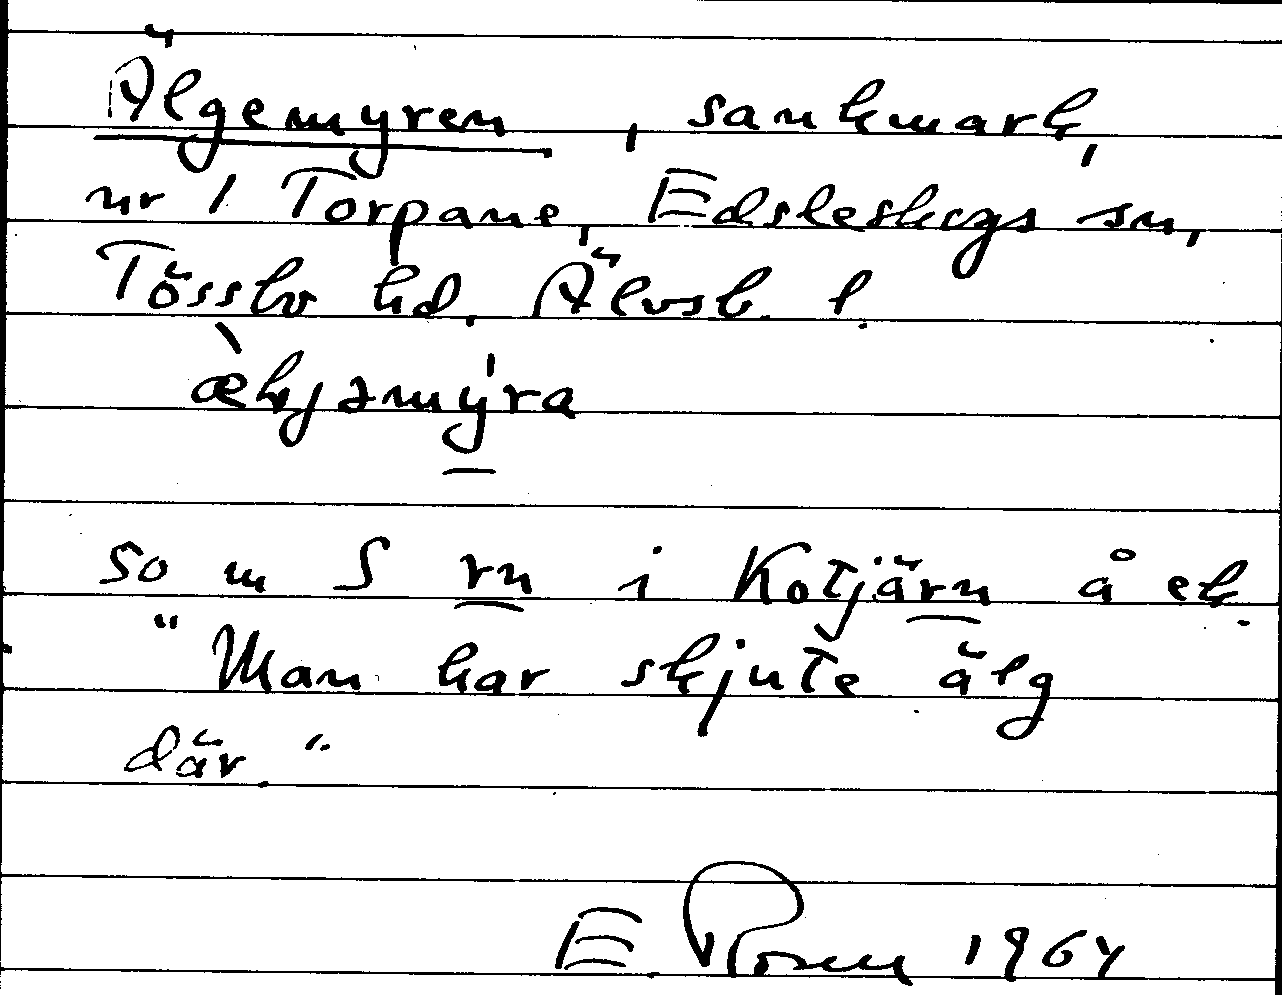 Älgemyren, sankmark,
nr 1 Torpane, Edsleskogs sn,
Tössbo hd. Älvsb. l.
so m S rn i Kotjärn å ek.
"Man har skjute älg
där."
E. Rosén 1964